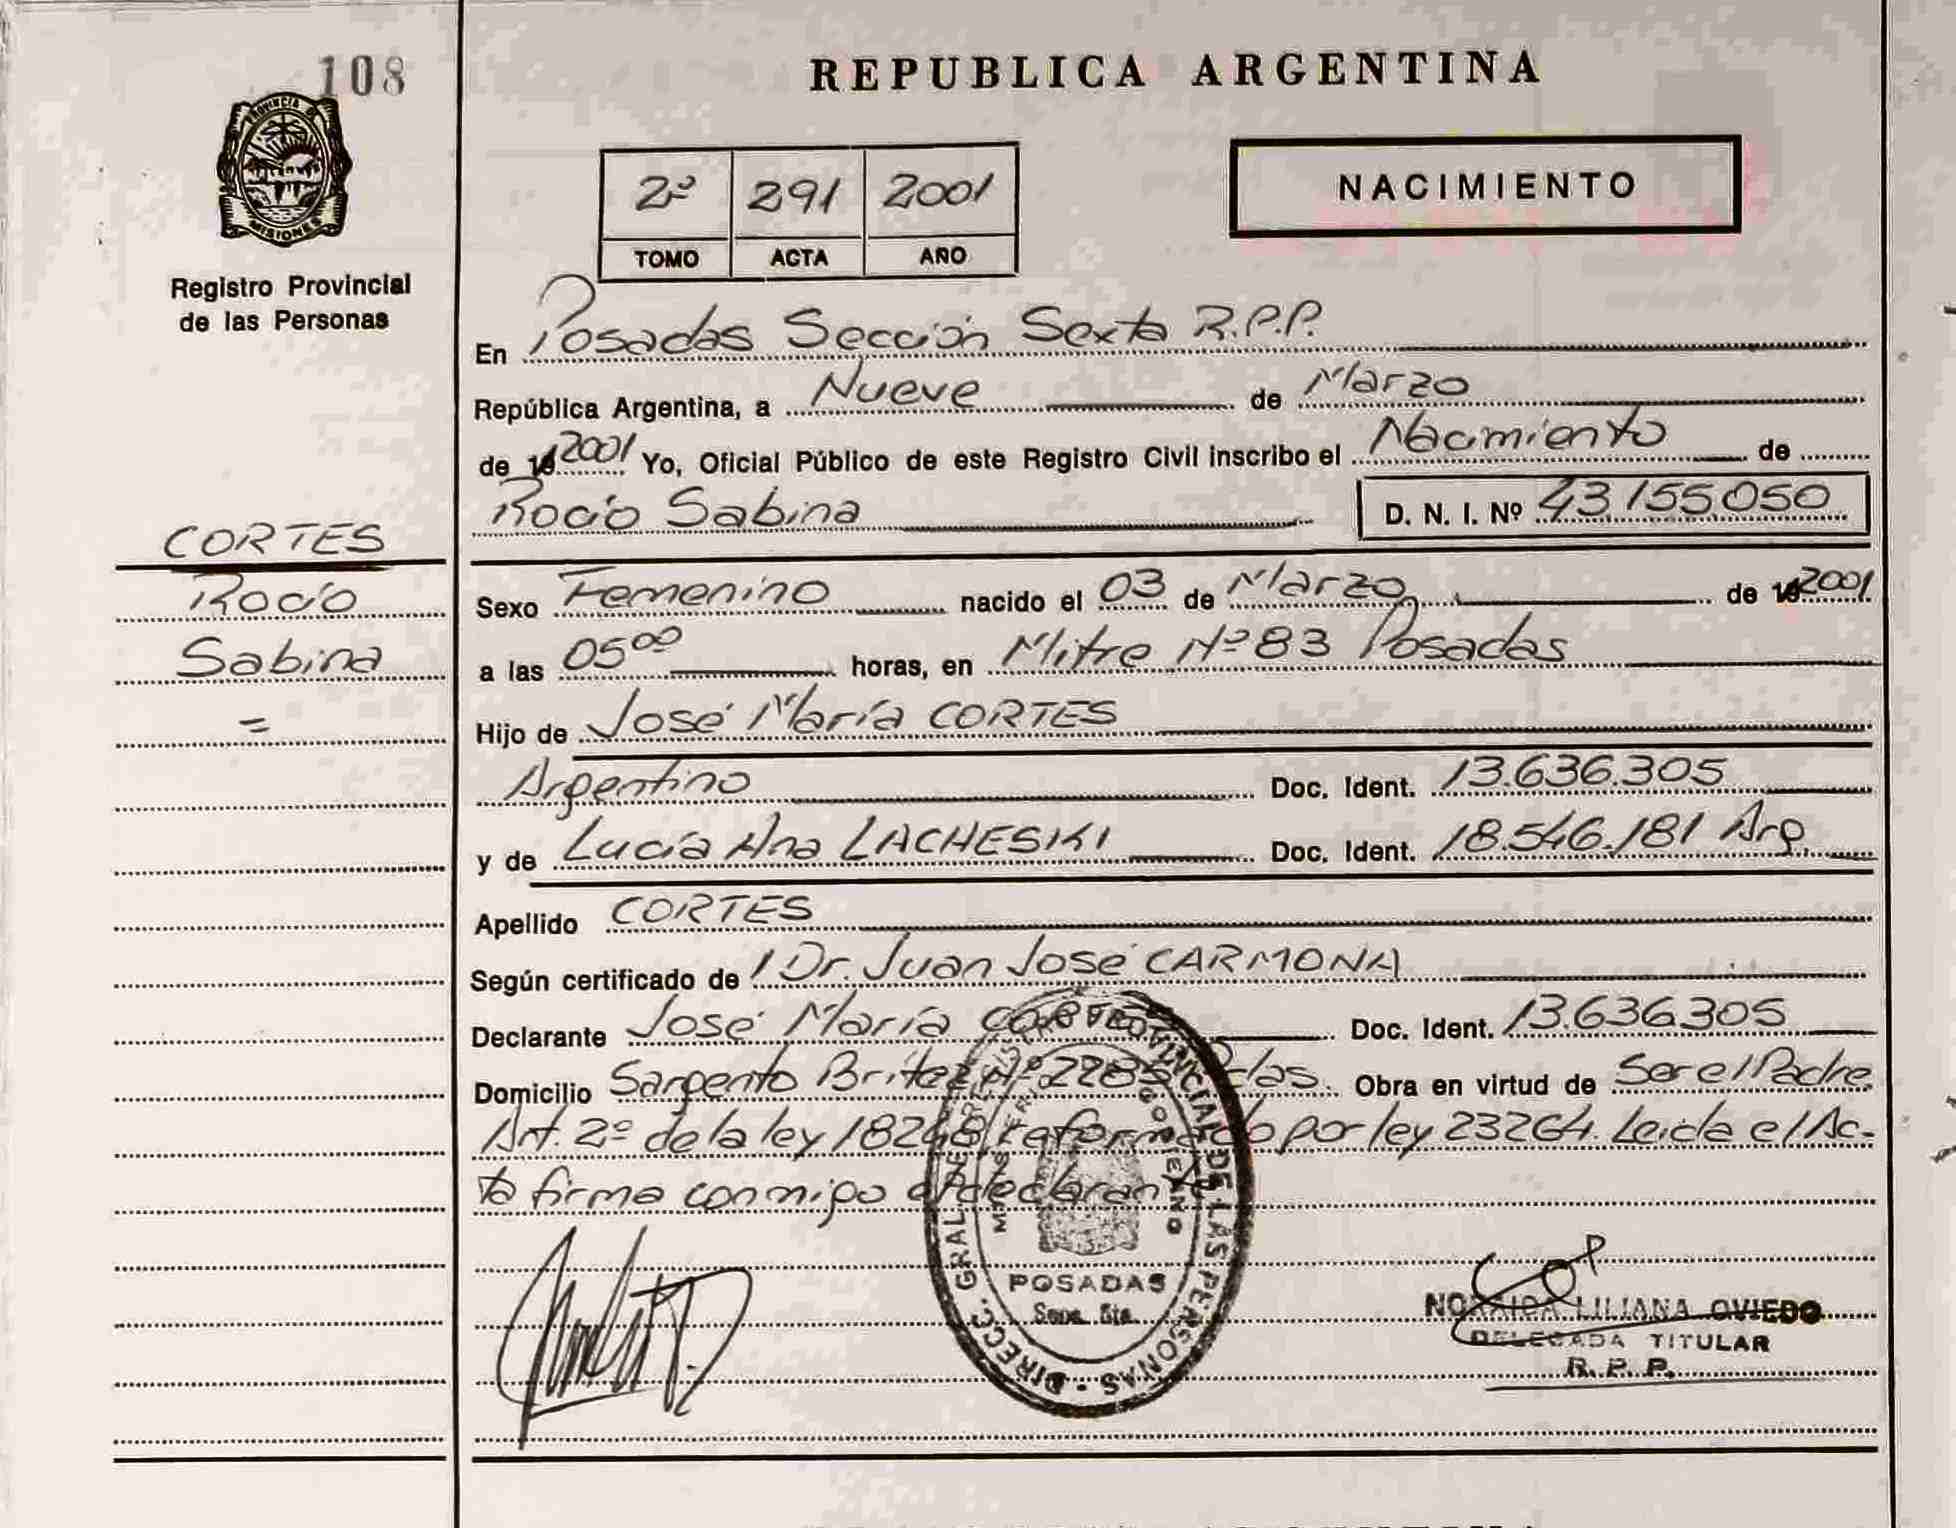 108
REPUBLICA ARGENTINA
PROVINCIA DE
MISIONES
Registro Provincial
de las Personas
2º 291 2001
TOMO ACTA AÑO
NACIMIENTO
En Posadas Sección Sexta R.P.P.
República Argentina, a Nueve de Marzo
de 19 2001 Yo, Oficial Público de este Registro Civil inscribo el Nacimiento de
Rocío Sabina D. N. I. Nº 43.155.050
CORTES
Rocío
Sabina
=
Sexo Femenino nacido el 03 de Marzo de 19 2001
a las 05⁰⁰ horas, en Mitre Nº 83 Posadas
Hijo de José María CORTES
Argentino Doc. Ident. 13.636.305
y de Lucía Ana LACHESKI Doc. Ident. 18.546.181 Arg.
Apellido CORTES
Según certificado de / Dr. Juan José CARMONA
Declarante José María CORTES Doc. Ident. 13.636.305
Domicilio Sargento Britez Nº 2285 Pdas. Obra en virtud de Ser el Padre
Art. 2º de la ley 18248 reformado por ley 23264. Leida el Ac-
ta firma conmigo el declarante
DIRECC. GRAL. DE REGISTRO PROVINCIAL DE LAS PERSONAS
MINISTERIO GOBIERNO
POSADAS
Secc. 6ta.
LILIANA OVIEDO
DELEGADA TITULAR
R. P. P.